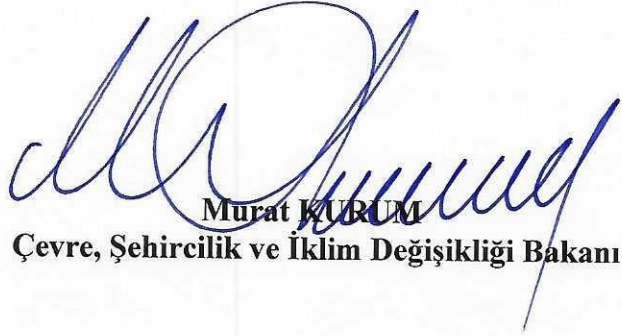 Murat KURUM
Çevre, Şehircilik ve İklim Değişikliği Bakanı